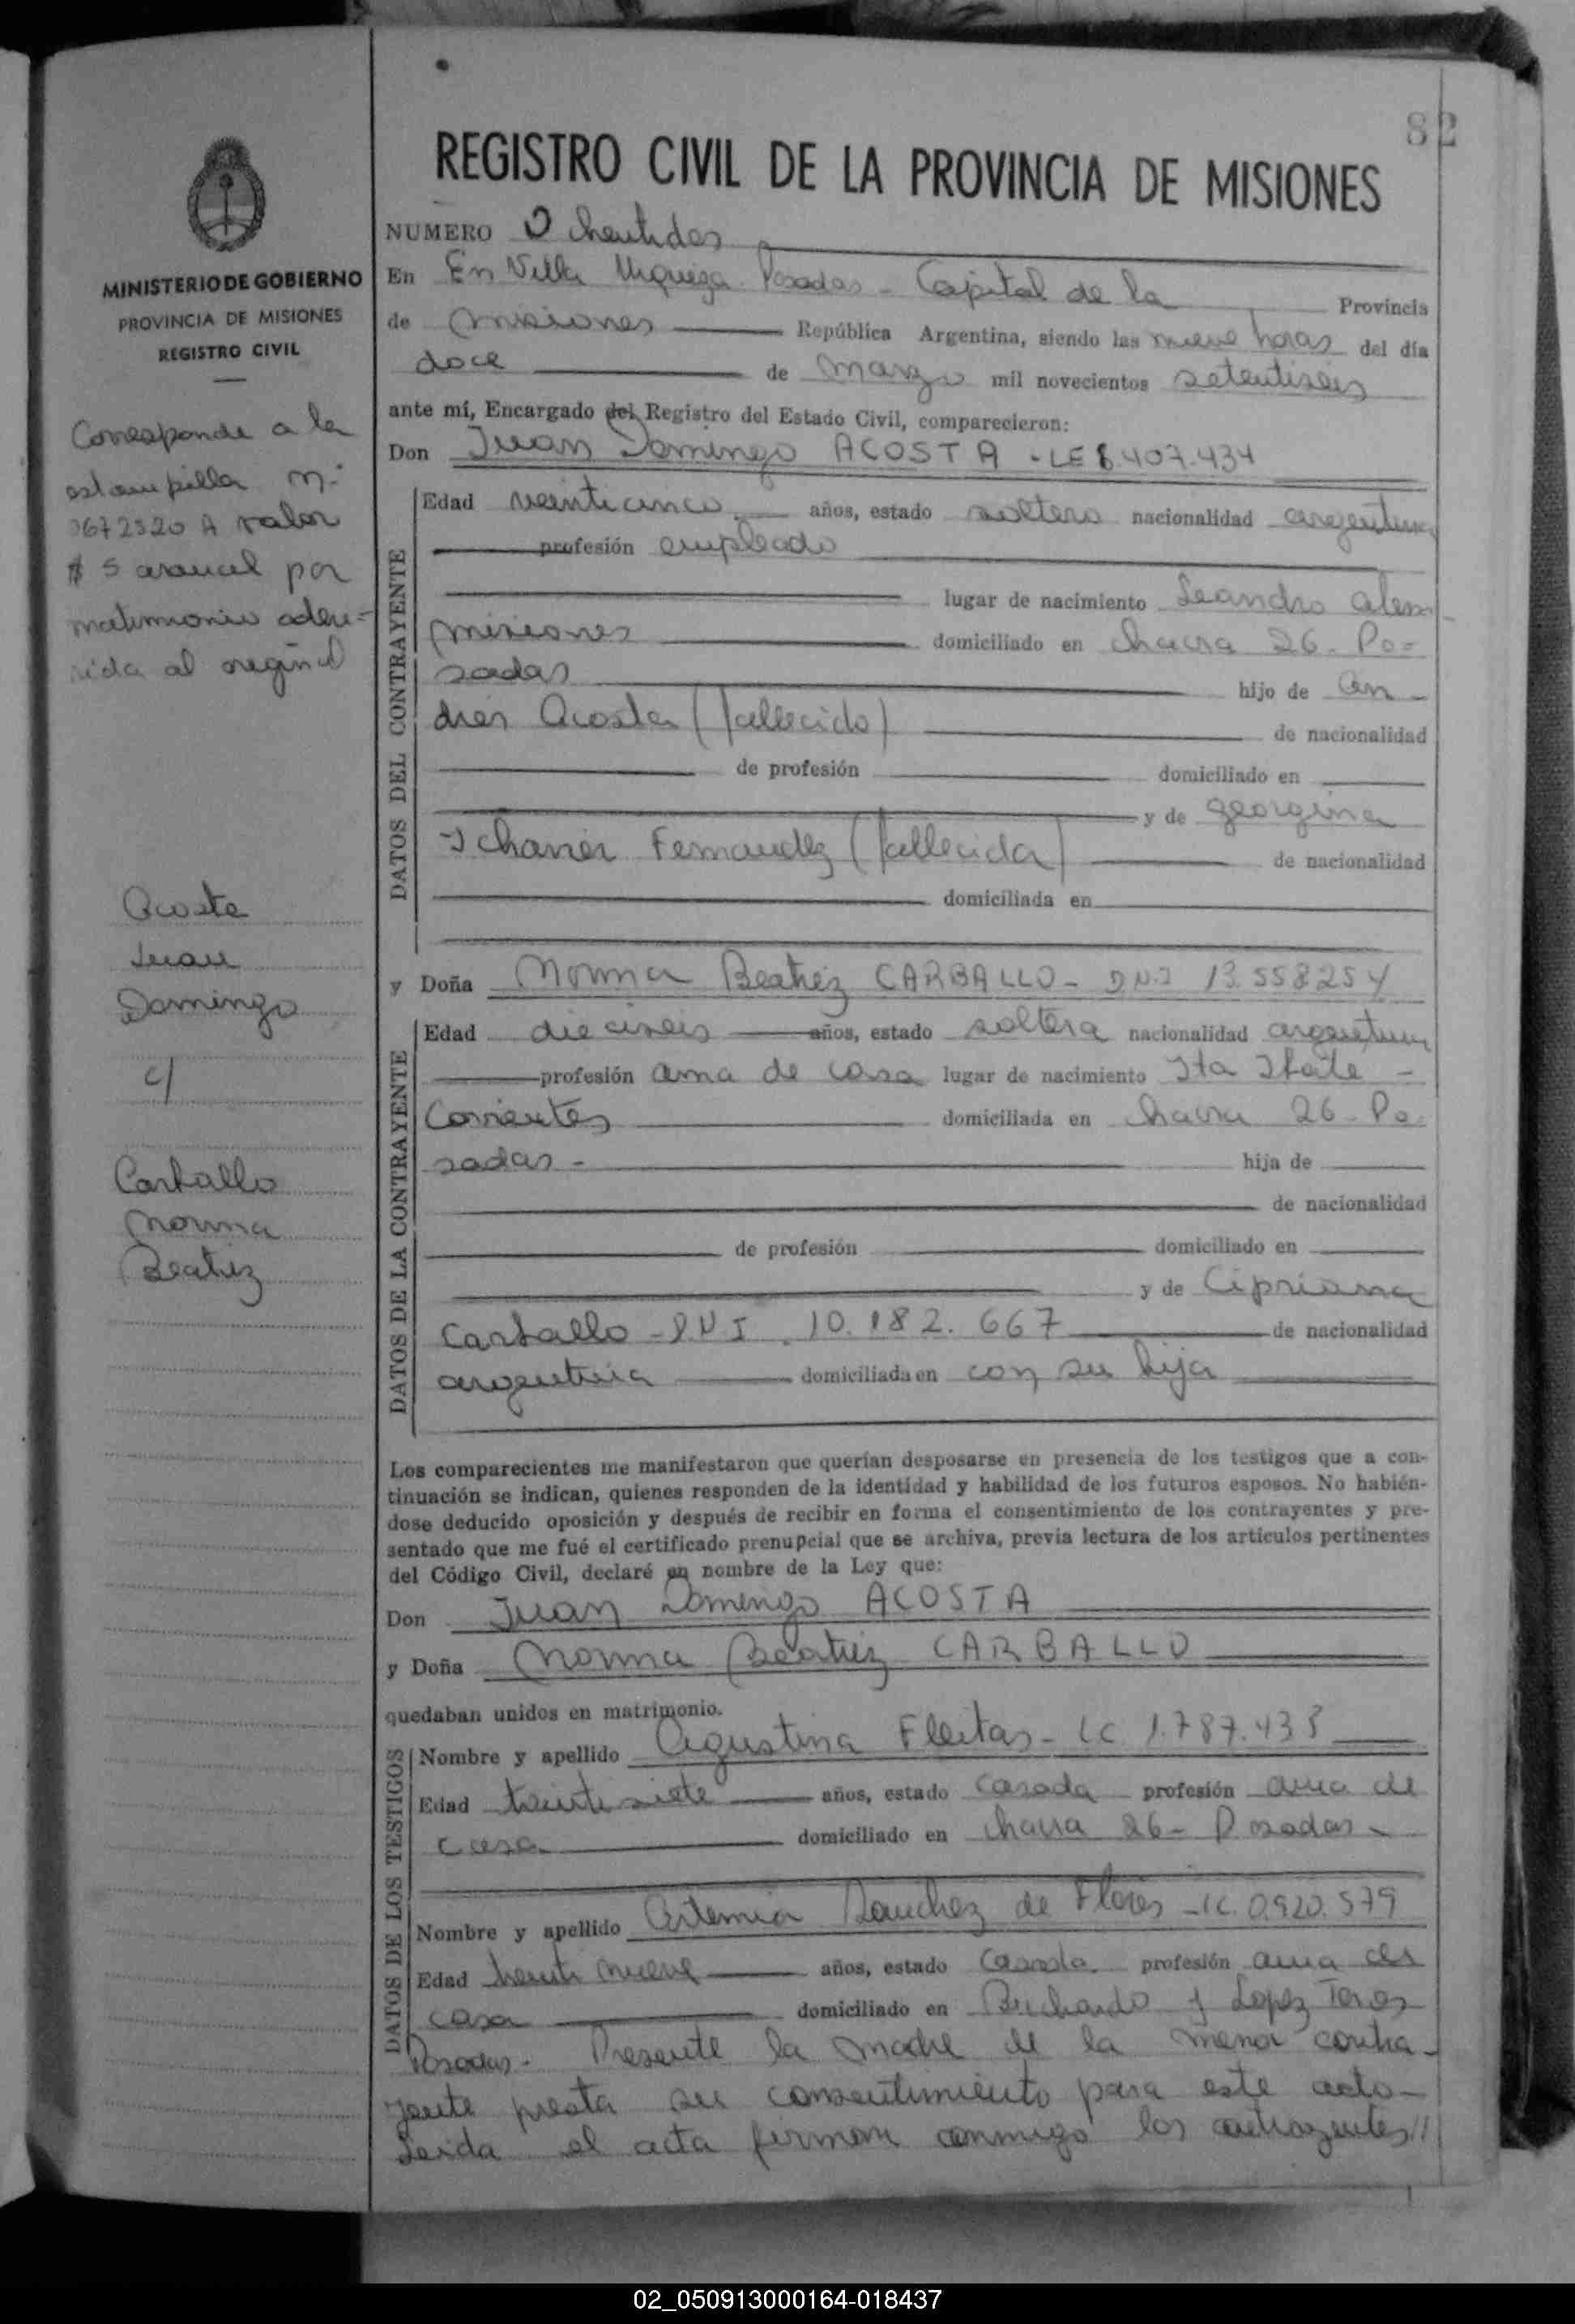 82
REGISTRO CIVIL DE LA PROVINCIA DE MISIONES
MINISTERIO DE GOBIERNO
PROVINCIA DE MISIONES
REGISTRO CIVIL
Corresponde a la
estampilla n:
0672320 A valor
$ 5 arancel por
matrimonio adhe=
rida al original
Acosta
Juan
Domingo
c/
Carballo
Norma
Beatriz
NUMERO Ochentidos
En En Villa Urquiza Posadas - Capital de la Provincia
de Misiones República Argentina, siendo las nueve horas del día
doce de Marzo mil novecientos setentiseis
ante mí, Encargado del Registro del Estado Civil, comparecieron:
Don Juan Domingo ACOSTA - LE 8.407.434
DATOS DEL CONTRAYENTE
Edad veinticinco años, estado soltero nacionalidad argentina
profesión empleado
lugar de nacimiento Leandro Alem
Misiones domiciliado en chacra 26 - Po=
sadas hijo de An-
dres Acosta (fallecido) de nacionalidad
de profesión domiciliado en
y de Georgina
Fernandez (fallecida) de nacionalidad
domiciliada en
y Doña Norma Beatriz CARBALLO - DNI 13.558254
DATOS DE LA CONTRAYENTE
Edad dieciseis años, estado soltera nacionalidad argentina
profesión ama de casa lugar de nacimiento Ita Ibate -
Corrientes domiciliada en chacra 26 - Po-
sadas - hija de
de nacionalidad
de profesión domiciliado en
y de Cipriana
Carballo - DNI 10.182.667 de nacionalidad
argentina domiciliada en con su hija
Los comparecientes me manifestaron que querían desposarse en presencia de los testigos que a con-
tinuación se indican, quienes responden de la identidad y habilidad de los futuros esposos. No habién-
dose deducido oposición y después de recibir en forma el consentimiento de los contrayentes y pre-
sentado que me fué el certificado prenupcial que se archiva, previa lectura de los artículos pertinentes
del Código Civil, declaré en nombre de la Ley que:
Don Juan Domingo ACOSTA
y Doña Norma Beatriz CARBALLO
quedaban unidos en matrimonio.
DATOS DE LOS TESTIGOS
Nombre y apellido Agustina Fleitas - LC 1.787.438
Edad treintisiete años, estado casada profesión ama de
casa domiciliado en chacra 26 - Posadas -
Nombre y apellido Artemia Sanchez de Flores - LC. 0.920.579
Edad treinti nueve años, estado Casada profesión ama de
casa domiciliado en Buchardo y Lopez Torres
Posadas - Presente la madre de la menor contra-
yente presta su consentimiento para este acto -
Leida el acta firman conmigo los contrayentes//
02_050913000164-018437